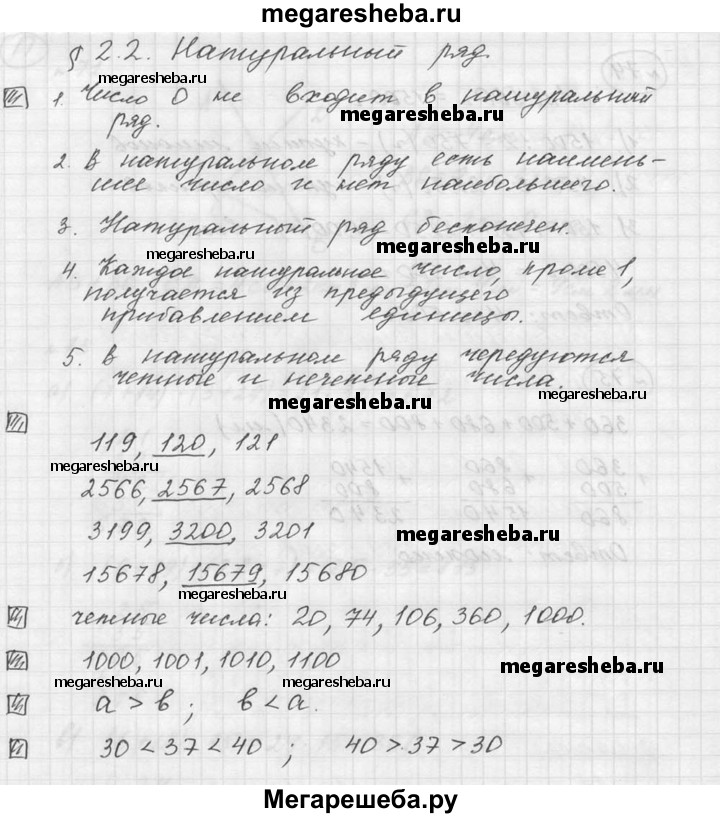 megaresheba.ru
§ 2.2. Натуральный ряд.
megaresheba.ru
1. Число 0 не входит в натуральный
megaresheba.ru
ряд.
2. В натуральном ряду есть наимень-
шее число и нет наибольшего.
3. Натуральный ряд бесконечен.
megaresheba.ru
megaresheba.ru
4. Каждое натуральное число, кроме 1,
получается из предыдущего
прибавлением единицы.
5. В натуральном ряду чередуются
четные и нечетные числа.
megaresheba.ru
119, 120, 121
megaresheba.ru
2566, 2567, 2568
3199, 3200, 3201
megaresheba.ru
15678, 15679, 15680
megaresheba.ru
четные числа: 20, 74, 106, 360, 1000.
1000, 1001, 1010, 1100
megaresheba.ru
megaresheba.ru megaresheba.ru
a > b ; b < a.
30 < 37 < 40 ; 40 > 37 > 30
Мегарешеба.ру